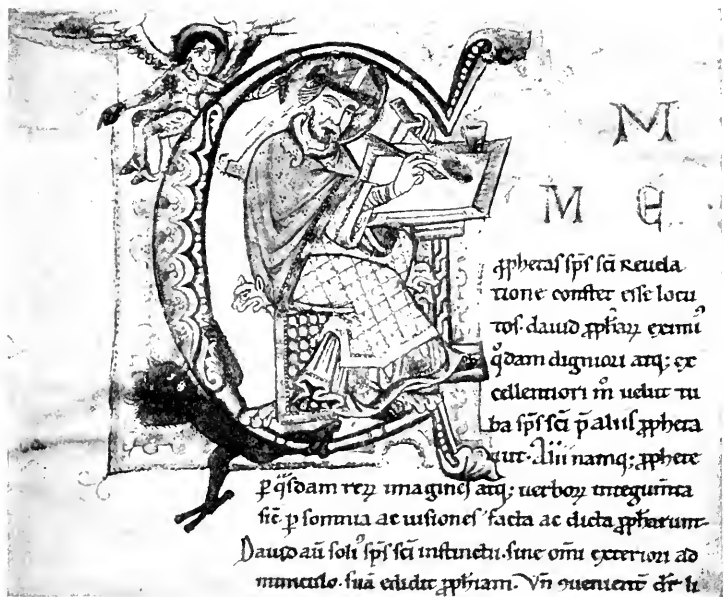 C
M
M E
ꝓphetas sp̄s sc̄i Reuela
tione constet esse locu
tos. dauid ꝓph̄aꝝ eximiꝰ
q̊dam digniori atq; ex
cellentiori m̊ uelut tu
ba sp̄s sc̄i p̄ aliis ꝓpheta
uit. Alii namq; ꝓphete
ꝑ q̄sdam reꝝ imagines atq; uerboꝝ integum̄ta
sic̄ ꝑ somnia ac uisiones facta ac dicta ꝓph̄arunt.
Dauid aū soliꝰ sp̄s sc̄i instinctu. sine om̄i exteriori ad
miniculo. suā edidit ꝓph̄iam. Vn̄ ꝯuenient̄ dr̄ li